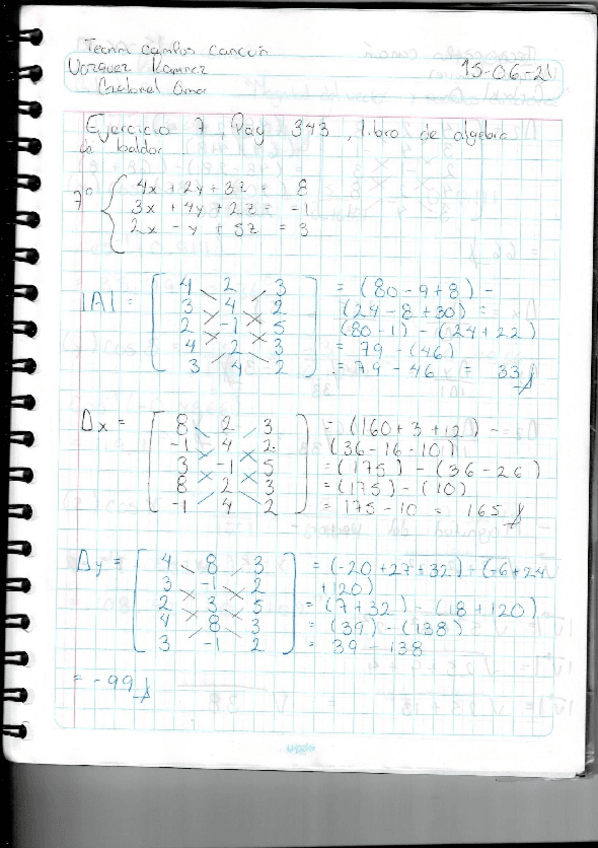 Tecnm campus cancún
Vazquez Ramirez
15-06-21
Gabriel Omar
Ejercicio 7, Pag 343, libro de algebra
de baldor
7° { 4x + 2y + 3z = 8
3x + 4y + 2z = -1
2x - y + 5z = 3
|A| = [ 4 2 3 = (80 - 9 + 8) -
3 4 2 (24 - 8 + 30) =
2 -1 5 (80 - 1) - (24 + 22)
4 2 3 = 79 - (46)
3 4 2 ] = 79 - 46 = 33
Δx = [ 8 2 3 = (160 + 3 + 12) -
-1 4 2 (36 - 16 - 10)
3 -1 5 = (175) - (36 - 26)
8 2 3 = (175) - (10)
-1 4 2 ] = 175 - 10 = 165
Δy = [ 4 8 3 = (-20 + 27 + 32) - (-6 + 24
3 -1 2 + 120)
2 3 5 = (7 + 32) - (18 + 120)
4 8 3 = (39) - (138)
3 -1 2 ] = 39 - 138
= -99